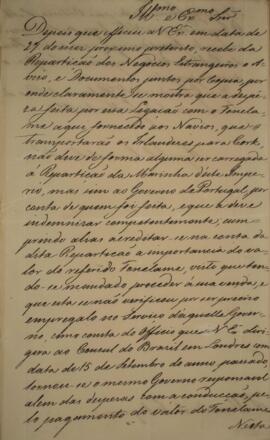 Illmo e Exmo Snr
Depois que officiei a V Exa em data de
27 do mez proximo preterito, recebi da
Repartição dos Negocios Estrangeiros o A-
viso, e Documentos juntos por Copia, por
onde claramente se mostra que a despe-
za feita por essa Legação com o Vasilha-
me aqui fornecido aos Navios, que
transportarão os Irlandezes para Cork,
não deve de forma alguma ser carregada
á Repartição da Marinha deste Impe-
rio, mas sim ao Governo de Portugal, por
conta de quem foi feita, e que a deve
indemnizar competentemente, cum-
prindo alias acreditar-se na conta da
dita Repartição a importancia do va-
lor do referido Vasilhame, visto que ten-
do-se mandado proceder á sua venda, e
que esta se não verificou por ser preciso
empregalo no Serviço daquelle Gover-
no, como consta do Officio que V Exa diri-
gira ao Consul do Brasil em Londres com
data de 15 de Setembro do anno passado,
tornou-se o mesmo Governo responsavel
alem das despezas com a conducção, pe-
lo pagamento do valor do Vasilhame
Nesta